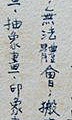 之無法體會、搬
、抽象畫、印象